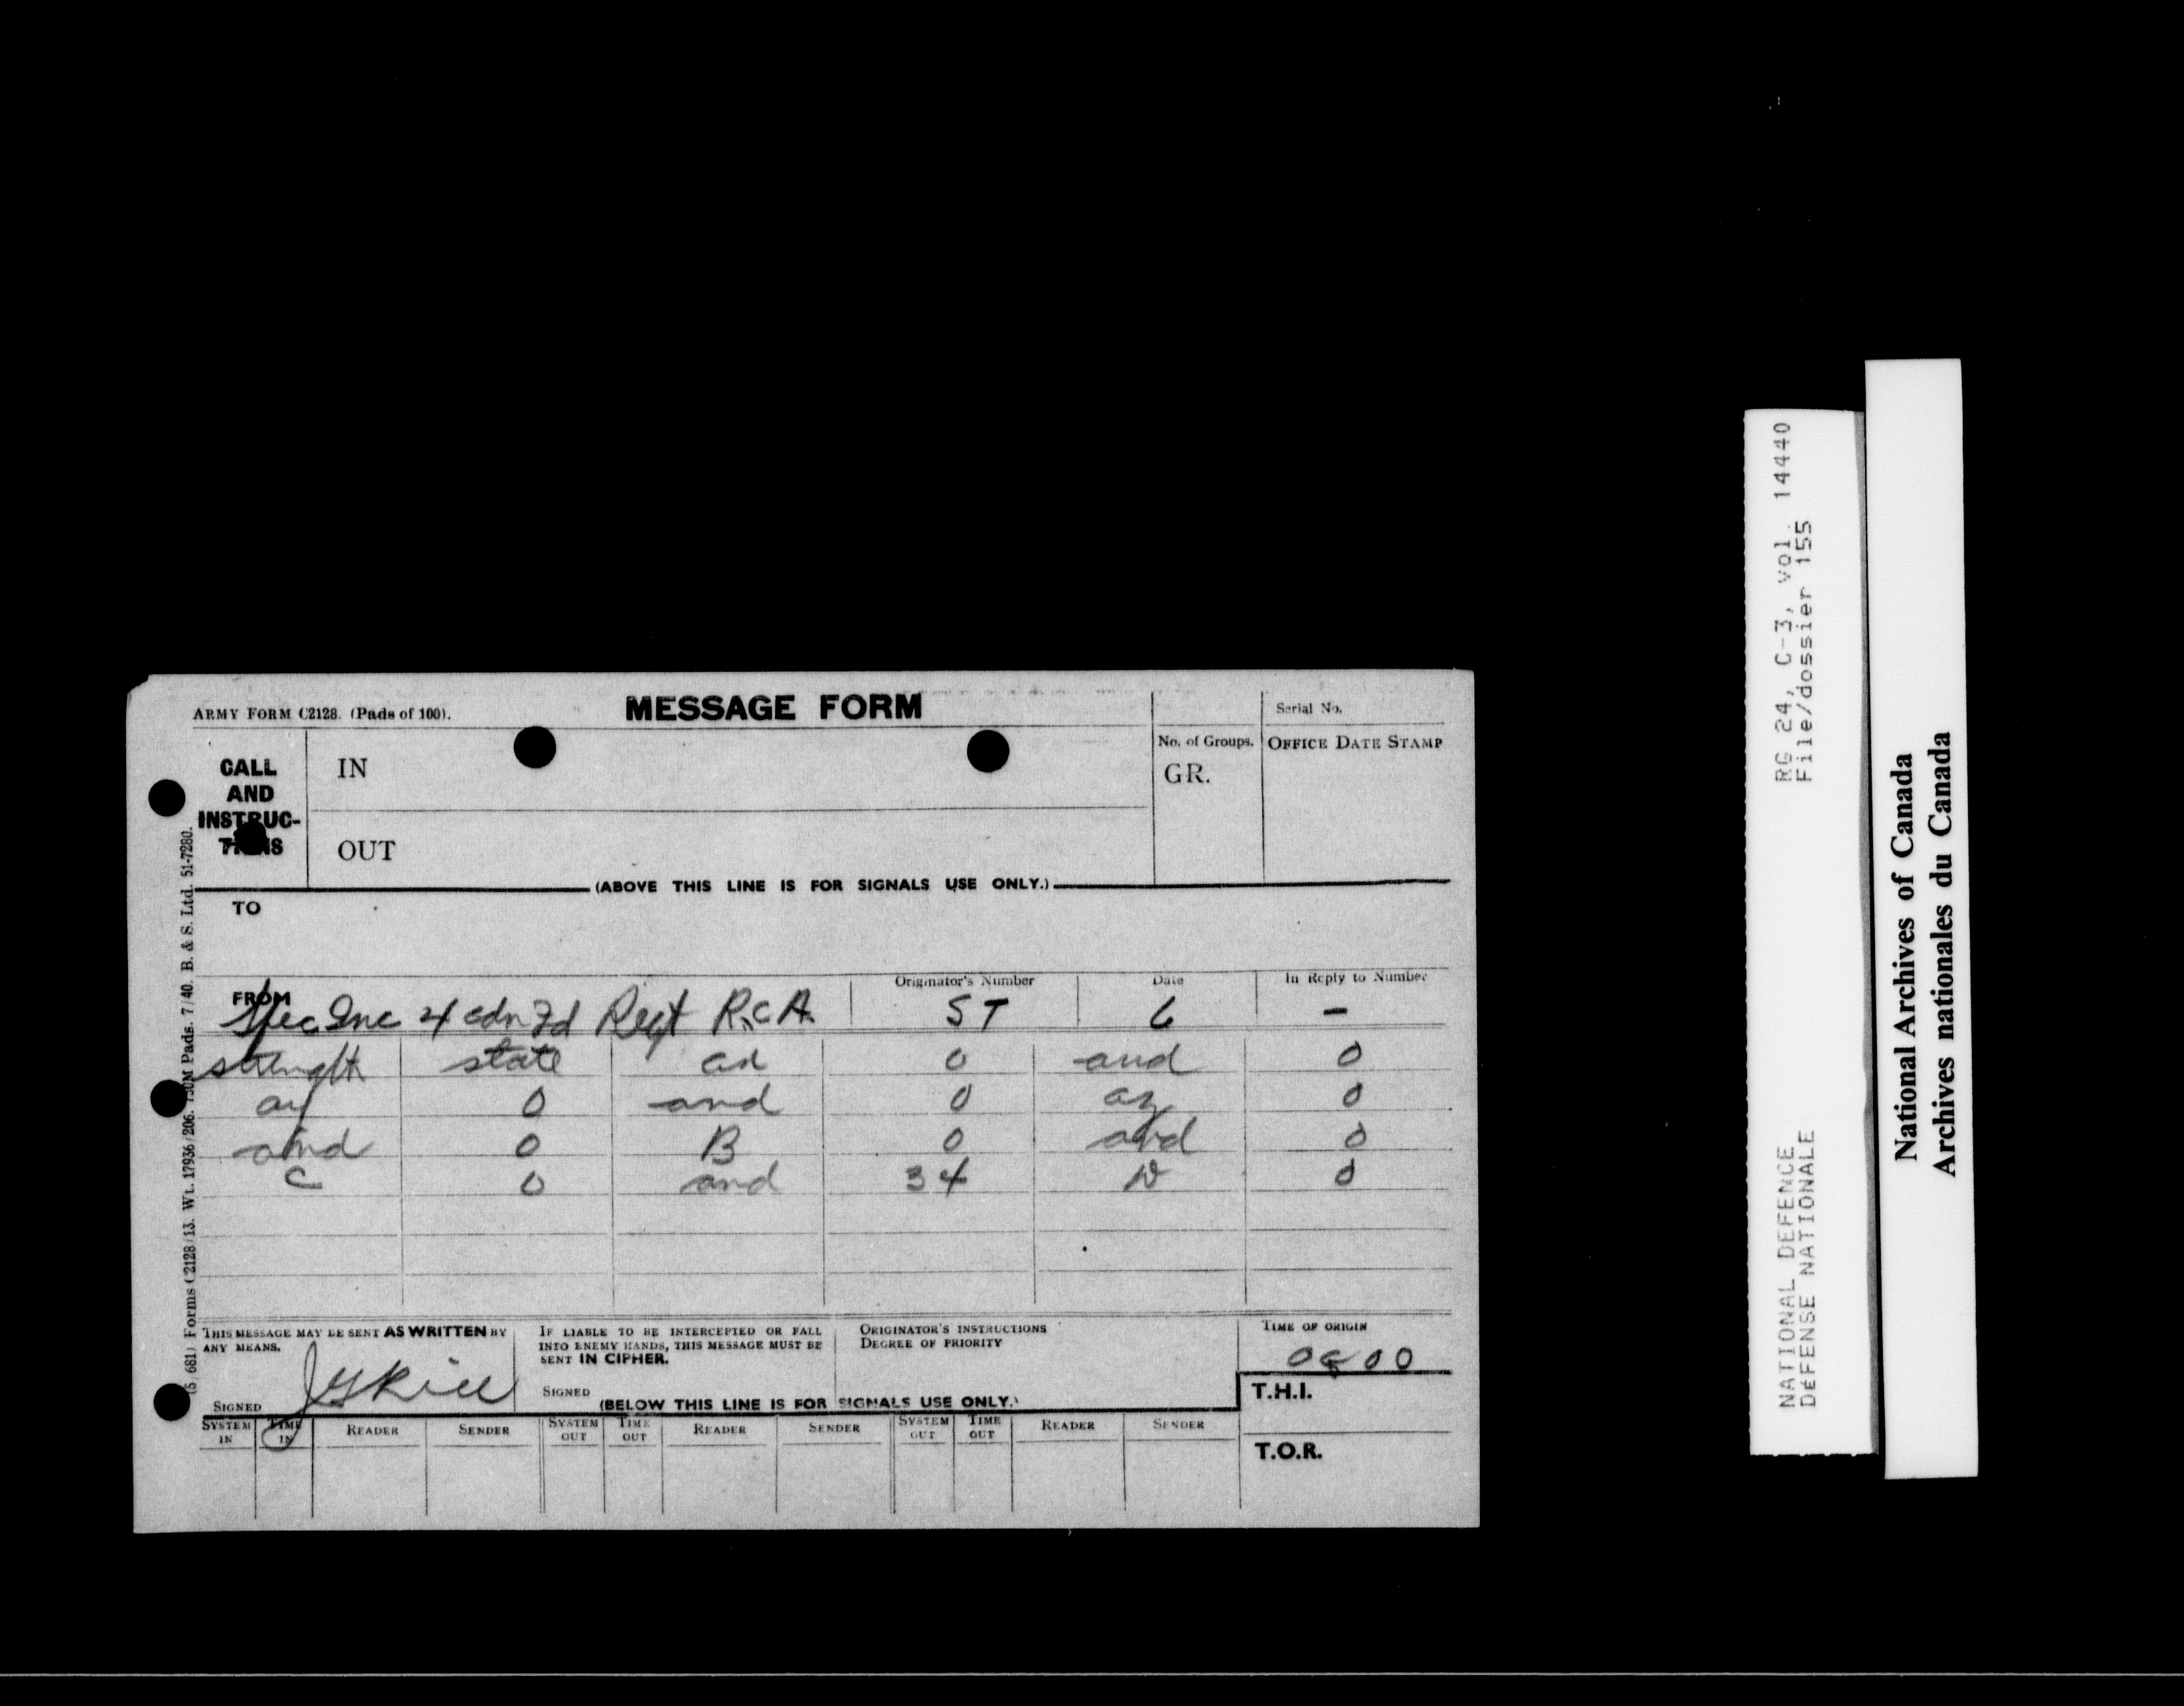 ARMY FORM C2128. (Pads of 100).
MESSAGE FORM
Serial No.
CALL AND INSTRUC-
IN
No. of Groups.
GR.
OFFICE DATE STAMP
OUT
(ABOVE THIS LINE IS FOR SIGNALS USE ONLY.)
TO
FROM
4 cdn Fd Regt R.C.A.
Originator's Number
ST
Date
6
In Reply to Number
-
strength state 0 and 0
ay 0 and 0 az 0
and 0 B 0 and 0
C 0 and 34 D 0
THIS MESSAGE MAY BE SENT AS WRITTEN BY
ANY MEANS.
SIGNED
IF LIABLE TO BE INTERCEPTED OR FALL
INTO ENEMY HANDS, THIS MESSAGE MUST BE
SENT IN CIPHER.
SIGNED
ORIGINATOR'S INSTRUCTIONS
DEGREE OF PRIORITY
TIME OF ORIGIN
(BELOW THIS LINE IS FOR SIGNALS USE ONLY.)
T.H.I.
SYSTEM IN TIME IN READER SENDER SYSTEM OUT TIME OUT READER SENDER SYSTEM OUT TIME OUT READER SENDER
T.O.R.
Forms C2128/13. Wt. 17936/206. Pads. 7/40. B. & S. Ltd. 51-7280.
RG 24, C-3, vol. 14440
File/dossier 155
NATIONAL DEFENCE
DÉFENSE NATIONALE
National Archives of Canada
Archives nationales du Canada